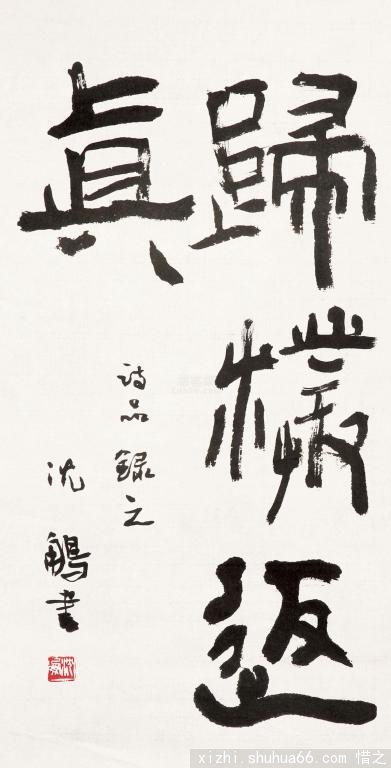 歸樸返
眞
詩品録之
沈鵬書
xizhi.shuhua66.com 惜之